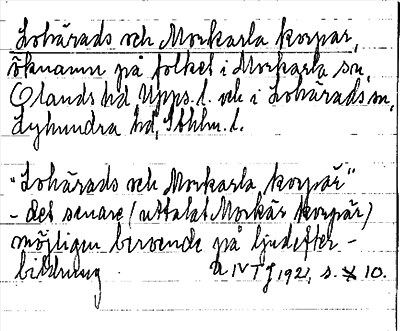 Lohärads och Morkarla korpar,
öknamn på folket i Morkarla sn,
Olands hd, Upps. l. och i Lohärads sn,
Lyhundra hd, Sthlm. l.
"Lohärads och Morkarla korpär"
- det senare (uttalat Morkär korpär)
möjligen beroende på ljudefter-
bildning. s. 10.